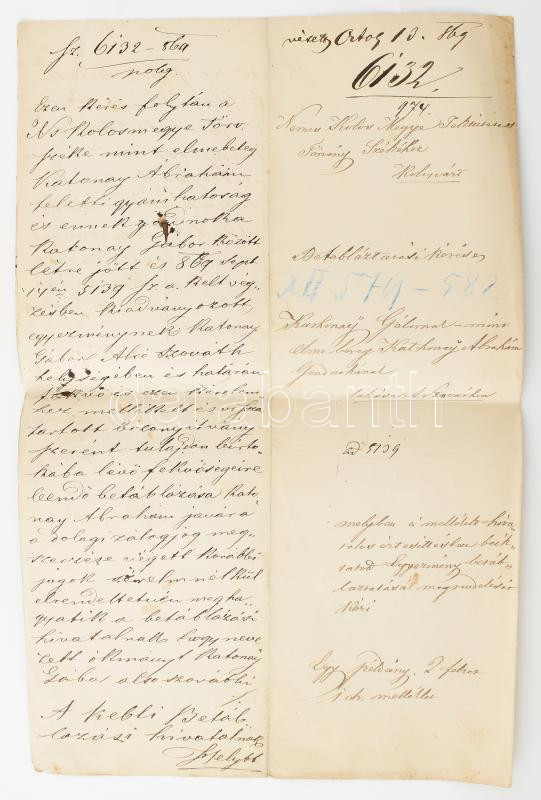 Sz. 6132 - 869
polg.
Ezen kérés folytán a
Ns Kolosmegye Törv.
széke mint elmebeteg
Katonay Ábrahám
feletti gyámhatóság
és ennek gondnoka
Katonay Gábor között
létre jött és 869 Sept
14én 5139 sz. a. kelt vég-
zésben kiadványozott
egyezménynek Katonay
Gábor Alsó Szováth
helységében és határán
fekvő és ezen kérelem-
hez mellékelt és vissza
tartott bizonyítvány
szerént tulajdon birto-
kába lévő fekvőségeire
leendő betáblázása Kato-
nay Ábrahám javára
a dologi zálogjog meg-
szerzése végett korábbi
jogok sérelm nélkül
elrendeltetvén megha-
gyatik a betáblázási
hivatalnak hogy neve
zett okmányt Katonay
Gábor alsó szováthi
A kebli Betáb-
lázási hivatalnak
Helybt
érkezett Octob 13. 869
6132.
974
Nemes Kolos Megye Tekintetes
Törvény Székéhez
Kolosvárt
Betábláztatási kérése
XII 579 - 582
Katonay Gábornak - mint
elmebeteg Kathonay Ábrahám
Gondnokának
ad 5139
melyben a mellékelt hiva-
talos értesítésben beik-
tatott Egyezmény betáb-
láztatását megrendelésér
kéri
Egy példány. 2 felzet
1 dr. melléklet
darabanth